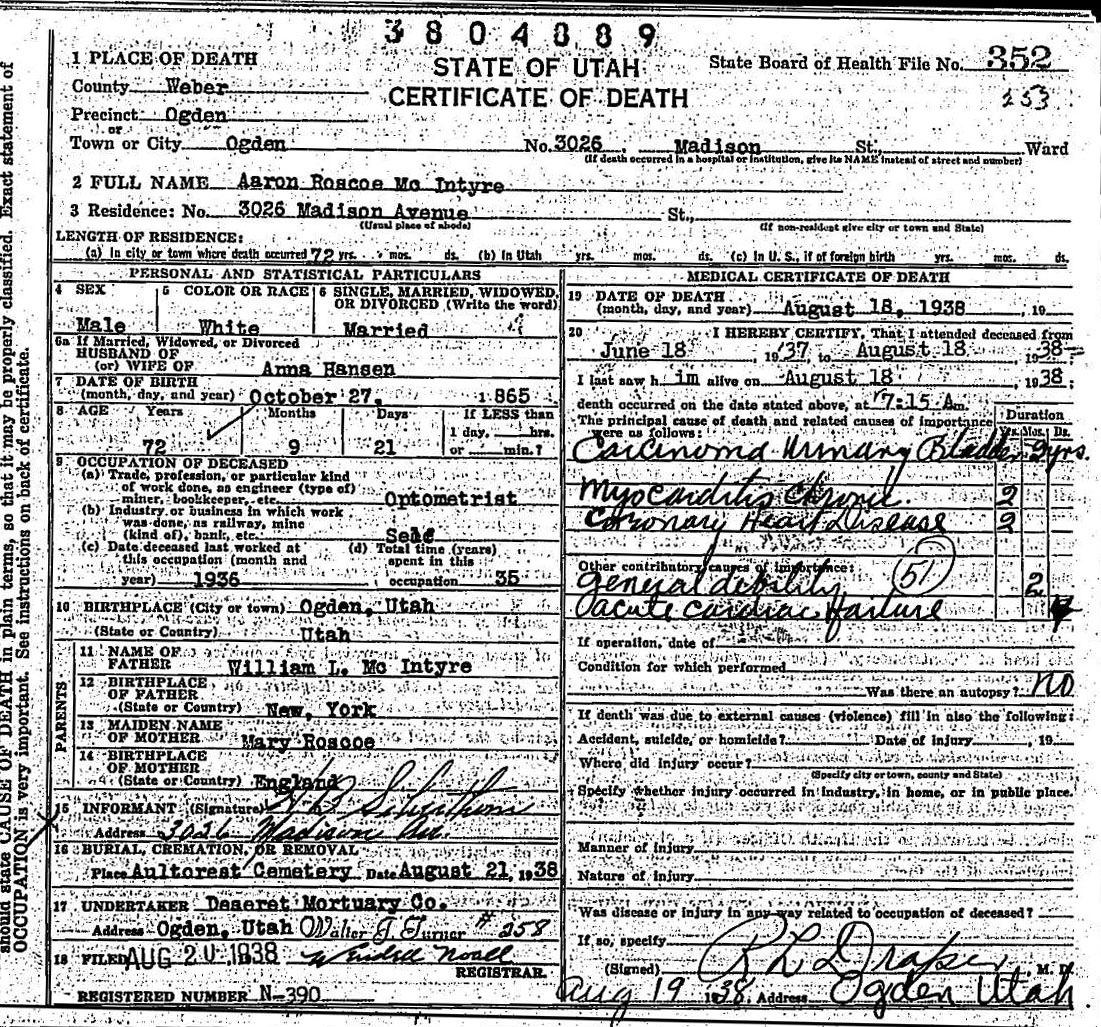 3804089
STATE OF UTAH
CERTIFICATE OF DEATH
State Board of Health File No. 352
253
1 PLACE OF DEATH
County Weber
Precinct Ogden
or
Town or City Ogden No. 3026 Madison St., Ward
(If death occurred in a hospital or institution, give its NAME instead of street and number)
2 FULL NAME Aaron Roscoe Mc Intyre
3 Residence: No. 3026 Madison Avenue St.,
(Usual place of abode) (If non-resident give city or town and State)
LENGTH OF RESIDENCE:
(a) In city or town where death occurred 72 yrs. mos. ds. (b) In Utah yrs. mos. ds. (c) In U. S., if of foreign birth yrs. mos. ds.
PERSONAL AND STATISTICAL PARTICULARS
4 SEX 5 COLOR OR RACE 6 SINGLE, MARRIED, WIDOWED, OR DIVORCED (Write the word)
Male White Married
6a If Married, Widowed, or Divorced
HUSBAND OF
(or) WIFE OF Anna Hansen
7 DATE OF BIRTH
(month, day, and year) October 27, 1865
8 AGE Years Months Days If LESS than
1 day, hrs.
72 9 21 or min.?
9 OCCUPATION OF DECEASED
(a) Trade, profession, or particular kind
of work done, as engineer (type of)
miner, bookkeeper, etc. Optometrist
(b) Industry or business in which work
was done, as railway, mine
(kind of), bank, etc. Self
(c) Date deceased last worked at
this occupation (month and
year) 1936
(d) Total time (years)
spent in this
occupation 35
10 BIRTHPLACE (City or town) Ogden, Utah
(State or Country) Utah
PARENTS
11 NAME OF
FATHER William L. Mc Intyre
12 BIRTHPLACE
OF FATHER
(State or Country) New, York
13 MAIDEN NAME
OF MOTHER Mary Roscoe
14 BIRTHPLACE
OF MOTHER
(State or Country) England
15 INFORMANT (Signature)
Address 3026 Madison Av.
16 BURIAL, CREMATION, OR REMOVAL
Place Aultorest Cemetery Date August 21, 1938
17 UNDERTAKER Deseret Mortuary Co.
Address Ogden, Utah Walter J. Turner # 258
18 FILED AUG 20 1938 Wendell Noall
REGISTRAR.
REGISTERED NUMBER N-390
MEDICAL CERTIFICATE OF DEATH
19 DATE OF DEATH
(month, day, and year) August 18, 1938, 19
20 I HEREBY CERTIFY, That I attended deceased from
June 18, 1937, to August 18 1938
I last saw h im alive on August 18, 1938;
death occurred on the date stated above, at 7:15 Am.
The principal cause of death and related causes of importance
were as follows:
Duration
Yrs. Mos. Ds.
Carcinoma Urinary Bladder 2 yrs.
Myocarditis Chronic. 2
Coronary Heart Disease 2
Other contributory causes of importance:
51
General debility 2
acute cardiac failure
If operation, date of
Condition for which performed
Was there an autopsy? no
If death was due to external causes (violence) fill in also the following:
Accident, suicide, or homicide? Date of injury, 19
Where did injury occur?
(Specify city or town, county and State)
Specify whether injury occurred in industry, in home, or in public place.
Manner of injury
Nature of injury
Was disease or injury in any way related to occupation of deceased?
If so, specify
(Signed) R L Draper M. D.
Aug 19 1938, Address Ogden Utah
should state CAUSE OF DEATH in plain terms, so that it may be properly classified. Exact statement of
OCCUPATION is very important. See instructions on back of certificate.